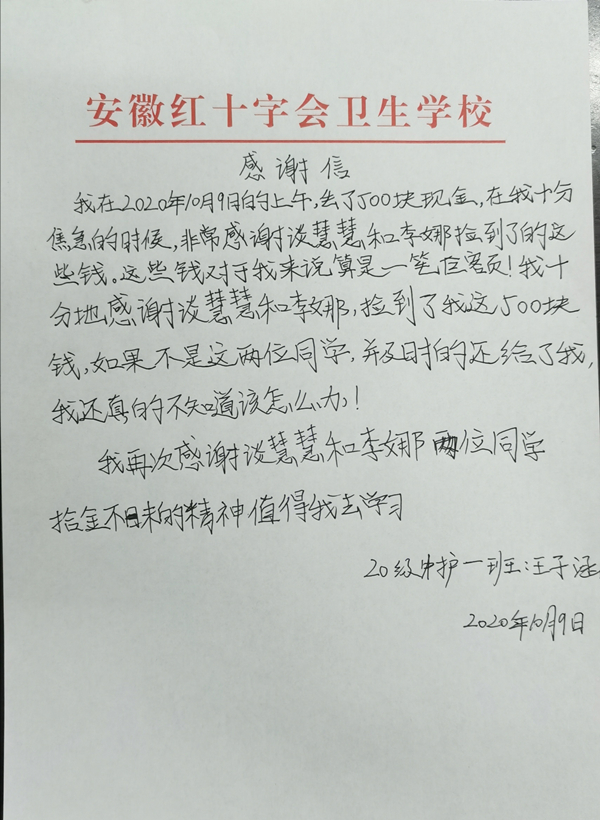 安徽红十字会卫生学校
感谢信
我在2020年10月9日的上午,丢了500块现金,在我十分
焦急的时候,非常感谢谈慧慧和李娜捡到了的这
些钱。这些钱对于我来说算是一笔巨额!我十
分地感谢谈慧慧和李娜,捡到了我这500块
钱,如果不是这两位同学,并及时的还给了我,
我还真的不知道该怎么办!
我再次感谢谈慧慧和李娜两位同学
拾金不昧的精神值得我去学习
20级中护一班:汪子涵
2020年10月9日